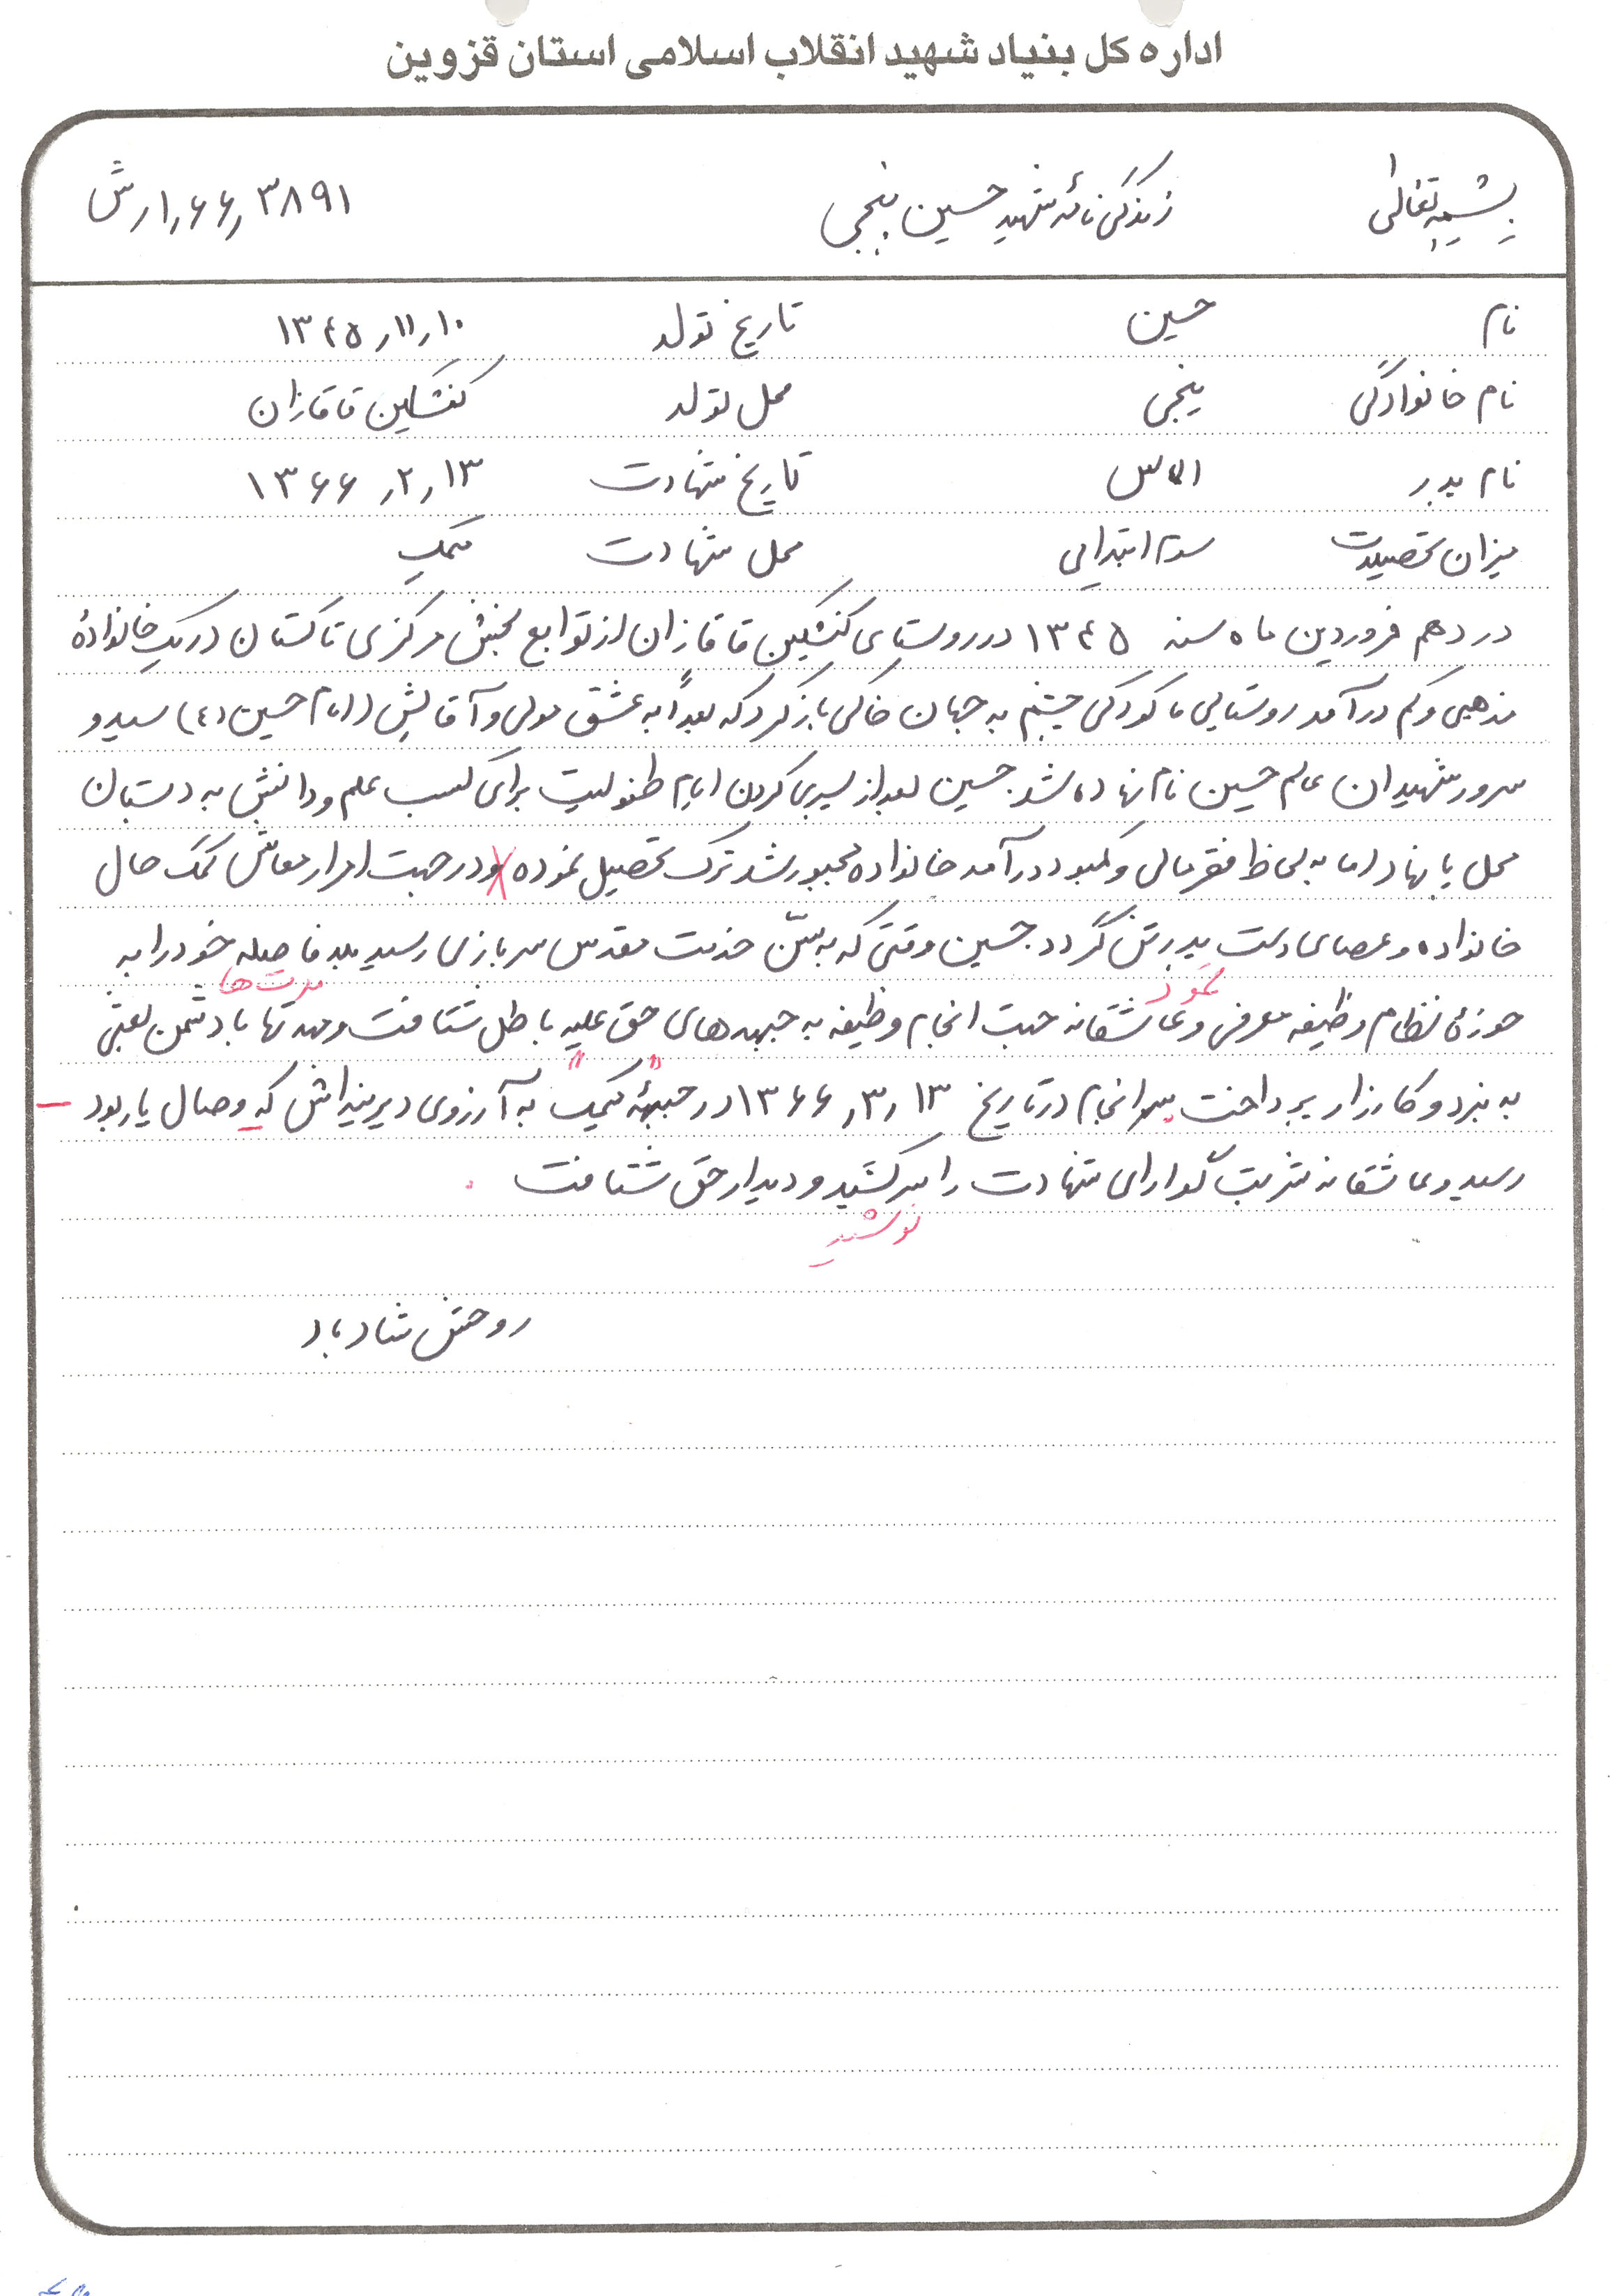 اداره کل بنیاد شهید انقلاب اسلامی استان قزوین
بسمه تعالی زندگی نامهٔ شهید حسین پنجی ۱٫۶۶٫۳۸۹۱رش
نام حسین تاریخ تولد ۱۳۴۵٫۱۱٫۱۰
نام خانوادگی پنجی محل تولد کنشکین قاقازان
نام پدر الماس تاریخ شهادت ۱۳۶۶٫۲٫۱۳
میزان تحصیلات سوم ابتدایی محل شهادت حکمک
در دهم فروردین ماه سنه ۱۳۴۵ در روستای کنشکین قاقازان از توابع بخش مرکزی تاکستان در یک خانوادهٔ
مذهبی و کم درآمد روستایی ما کودکی چشم به جهان خاکی باز کرد که بعداً به عشق مولی و آقایش (امام حسین (ع) سید و
سرور شهیدان عالم حسین نام نهاده شد. حسین بعد از سپری کردن ایام طفولیت برای کسب علم و دانش به دبستان
محل پا نهاد اما به لحاظ فقر مالی و کمبود درآمد خانواده مجبور شد ترک تحصیل نموده و در جهت امرار معاش کمک حال
خانواده و عصای دست پدرش گردد. حسین وقتی که به سن خدمت مقدس سربازی رسید بلافاصله خود را به
نمود مدت ها
حوزهٔ نظام وظیفه معرفی و عاشقانه جهت انجام وظیفه به جبهه های حق علیه باطل شتافت و مدتها با دشمن بعثی
به نبرد و کارزار پرداخت سرانجام در تاریخ ۱۳۶۶٫۳٫۱۳ در جبههٔ "حکمک" به آرزوی دیرینه اش که وصال یار بود –
رسید و عاشقانه شربت گوارای شهادت را سر کشید و دیدار حق شتافت .
نوشید
روحش شاد باد